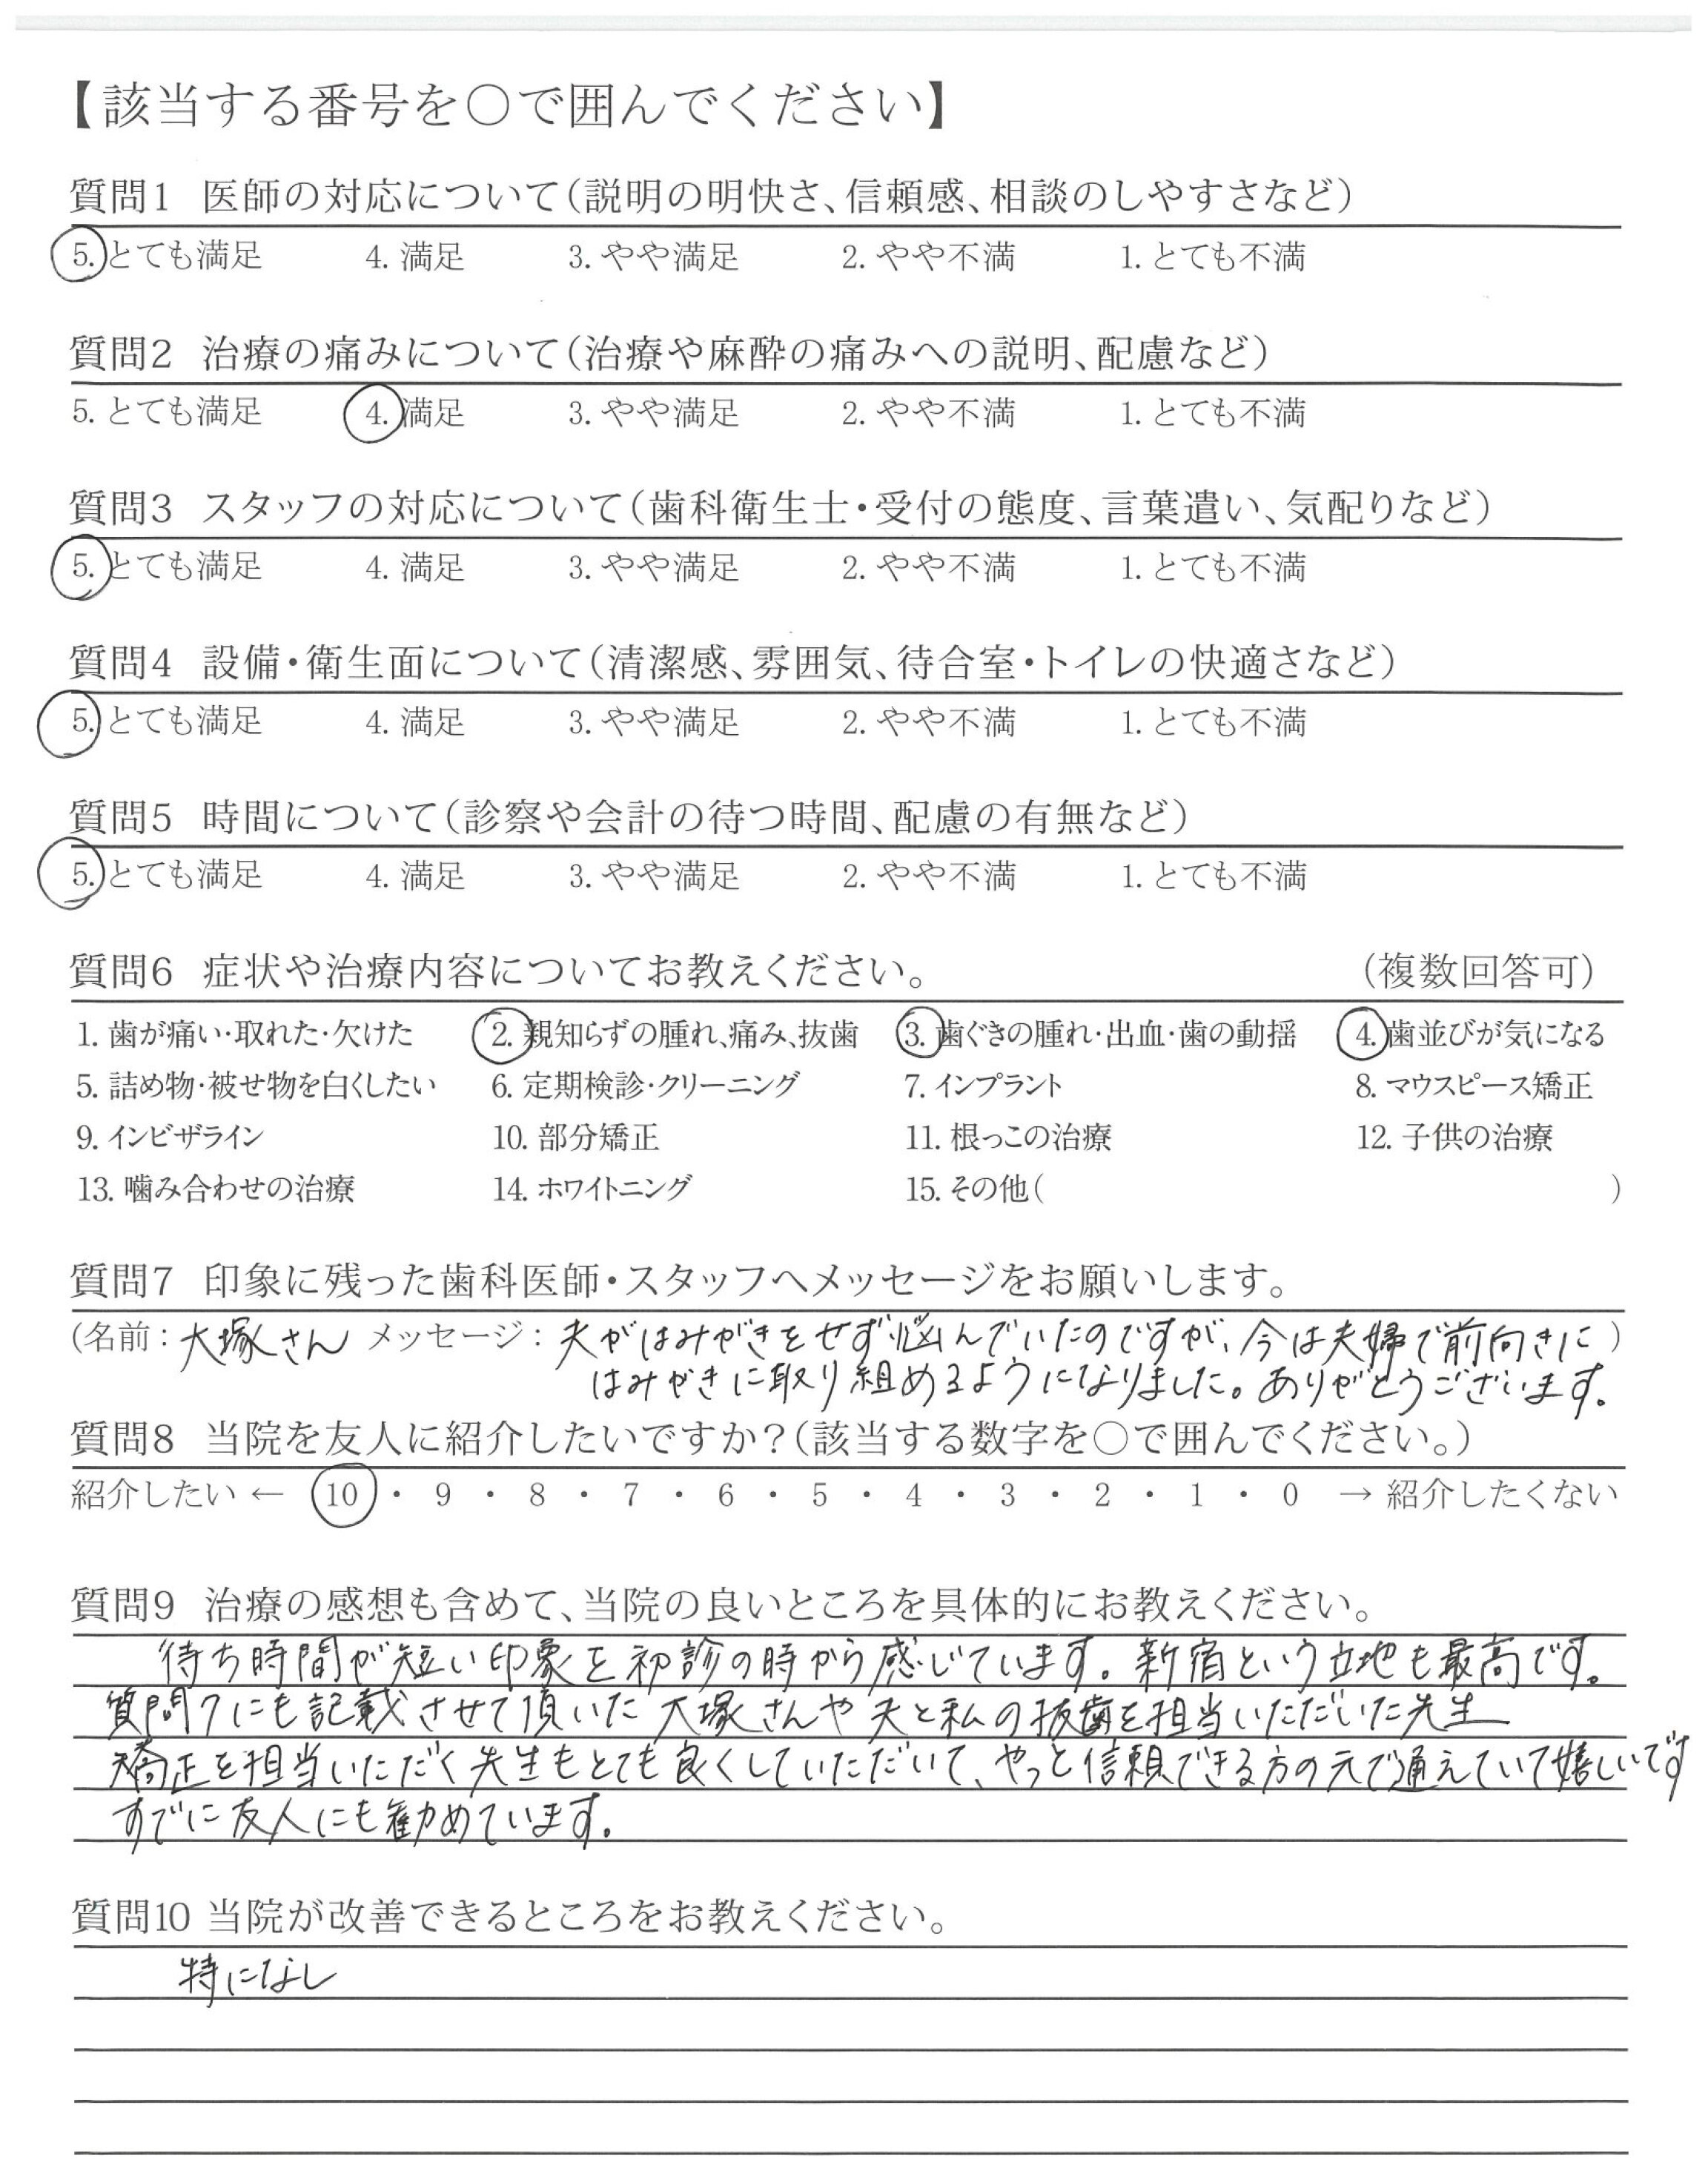 【該当する番号を○で囲んでください】
質問1 医師の対応について(説明の明快さ、信頼感、相談のしやすさなど)
5. とても満足 4. 満足 3. やや満足 2. やや不満 1. とても不満
質問2 治療の痛みについて(治療や麻酔の痛みへの説明、配慮など)
5. とても満足 4. 満足 3. やや満足 2. やや不満 1. とても不満
質問3 スタッフの対応について(歯科衛生士・受付の態度、言葉遣い、気配りなど)
5. とても満足 4. 満足 3. やや満足 2. やや不満 1. とても不満
質問4 設備・衛生面について(清潔感、雰囲気、待合室・トイレの快適さなど)
5. とても満足 4. 満足 3. やや満足 2. やや不満 1. とても不満
質問5 時間について(診察や会計の待つ時間、配慮の有無など)
5. とても満足 4. 満足 3. やや満足 2. やや不満 1. とても不満
質問6 症状や治療内容についてお教えください。 (複数回答可)
1. 歯が痛い・取れた・欠けた 2. 親知らずの腫れ、痛み、抜歯 3. 歯ぐきの腫れ・出血・歯の動揺 4. 歯並びが気になる
5. 詰め物・被せ物を白くしたい 6. 定期検診・クリーニング 7. インプラント 8. マウスピース矯正
9. インビザライン 10. 部分矯正 11. 根っこの治療 12. 子供の治療
13. 噛み合わせの治療 14. ホワイトニング 15. その他( )
質問7 印象に残った歯科医師・スタッフへメッセージをお願いします。
(名前：大塚さん メッセージ：夫がはみがきをせず悩んでいたのですが、今は夫婦で前向きに)
はみがきに取り組めるようになりました。ありがとうございます。
質問8 当院を友人に紹介したいですか？(該当する数字を○で囲んでください。)
紹介したい ← 10 ・ 9 ・ 8 ・ 7 ・ 6 ・ 5 ・ 4 ・ 3 ・ 2 ・ 1 ・ 0 → 紹介したくない
質問9 治療の感想も含めて、当院の良いところを具体的にお教えください。
待ち時間が短い印象を初診の時から感じています。新宿という立地も最高です。
質問7にも記載させて頂いた大塚さんや夫と私の抜歯を担当いただいた先生
矯正を担当いただく先生もとても良くしていただいて、やっと信頼できる方の元で通えていて嬉しいです
すでに友人にも勧めています。
質問10 当院が改善できるところをお教えください。
特になし